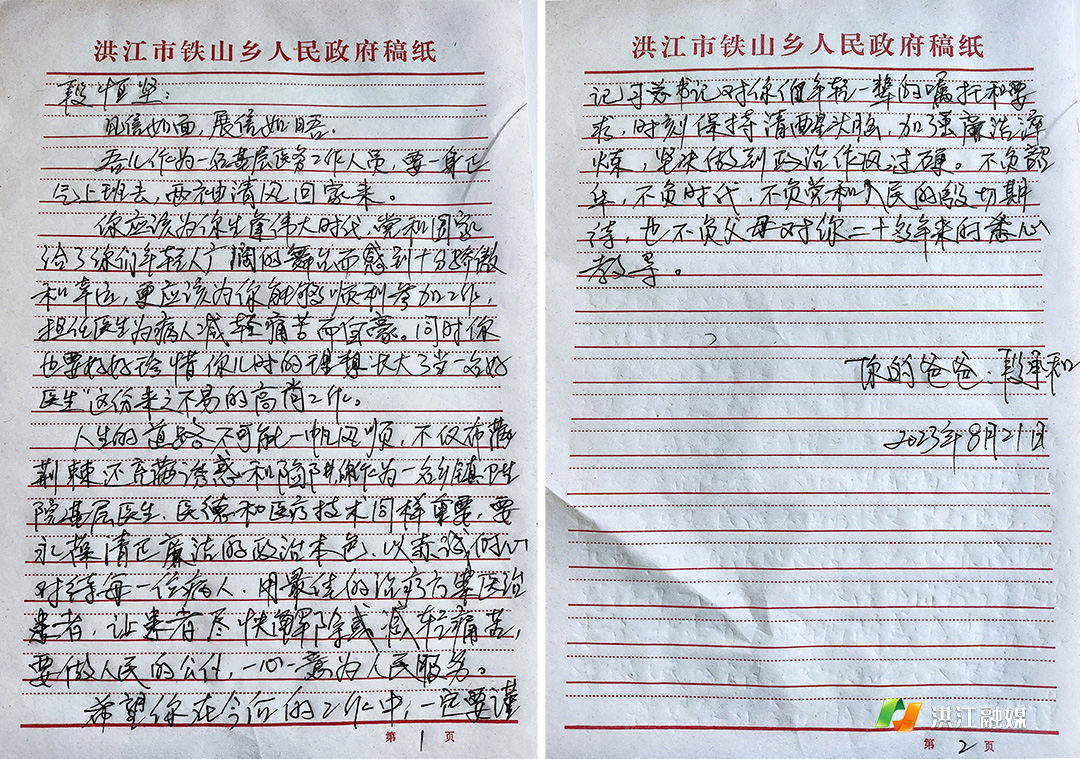 洪江市铁山乡人民政府稿纸
段恒坚：
见信如面，展信如晤。
吾儿作为一名基层医务工作人员，要一身正
气上班去，两袖清风回家来。
你应该为你生逢伟大时代，党和国家
给了你们年轻人广阔的舞台而感到十分骄傲
和幸运，更应该为你能够顺利参加工作，
担任医生为病人减轻痛苦而自豪。同时你
也要好好珍惜你儿时的理想“长大了当一名好
医生”这份来之不易的高尚工作。
人生的道路不可能一帆风顺，不仅布满
荆棘还充满诱惑和陷阱，你作为一名乡镇卫生
院基层医生，医德和医疗技术同样重要，要
永葆清正廉洁的政治本色，以赤诚的心
对待每一位病人，用最佳的治疗方案医治
患者，让患者尽快解除或减轻痛苦，
要做人民的公仆，一心一意为人民服务。
希望你在今后的工作中，一定要谨
第 1 页
洪江市铁山乡人民政府稿纸
记习总书记对你们年轻一辈的嘱托和要
求，时刻保持清醒头脑，加强廉洁淬
炼，坚决做到政治作风过硬。不负韶
华，不负时代，不负党和人民的殷切期
待，也不负父母对你二十多年来的悉心
教导。
你的爸爸：段承和
2023年8月21日
洪江融媒
第 2 页